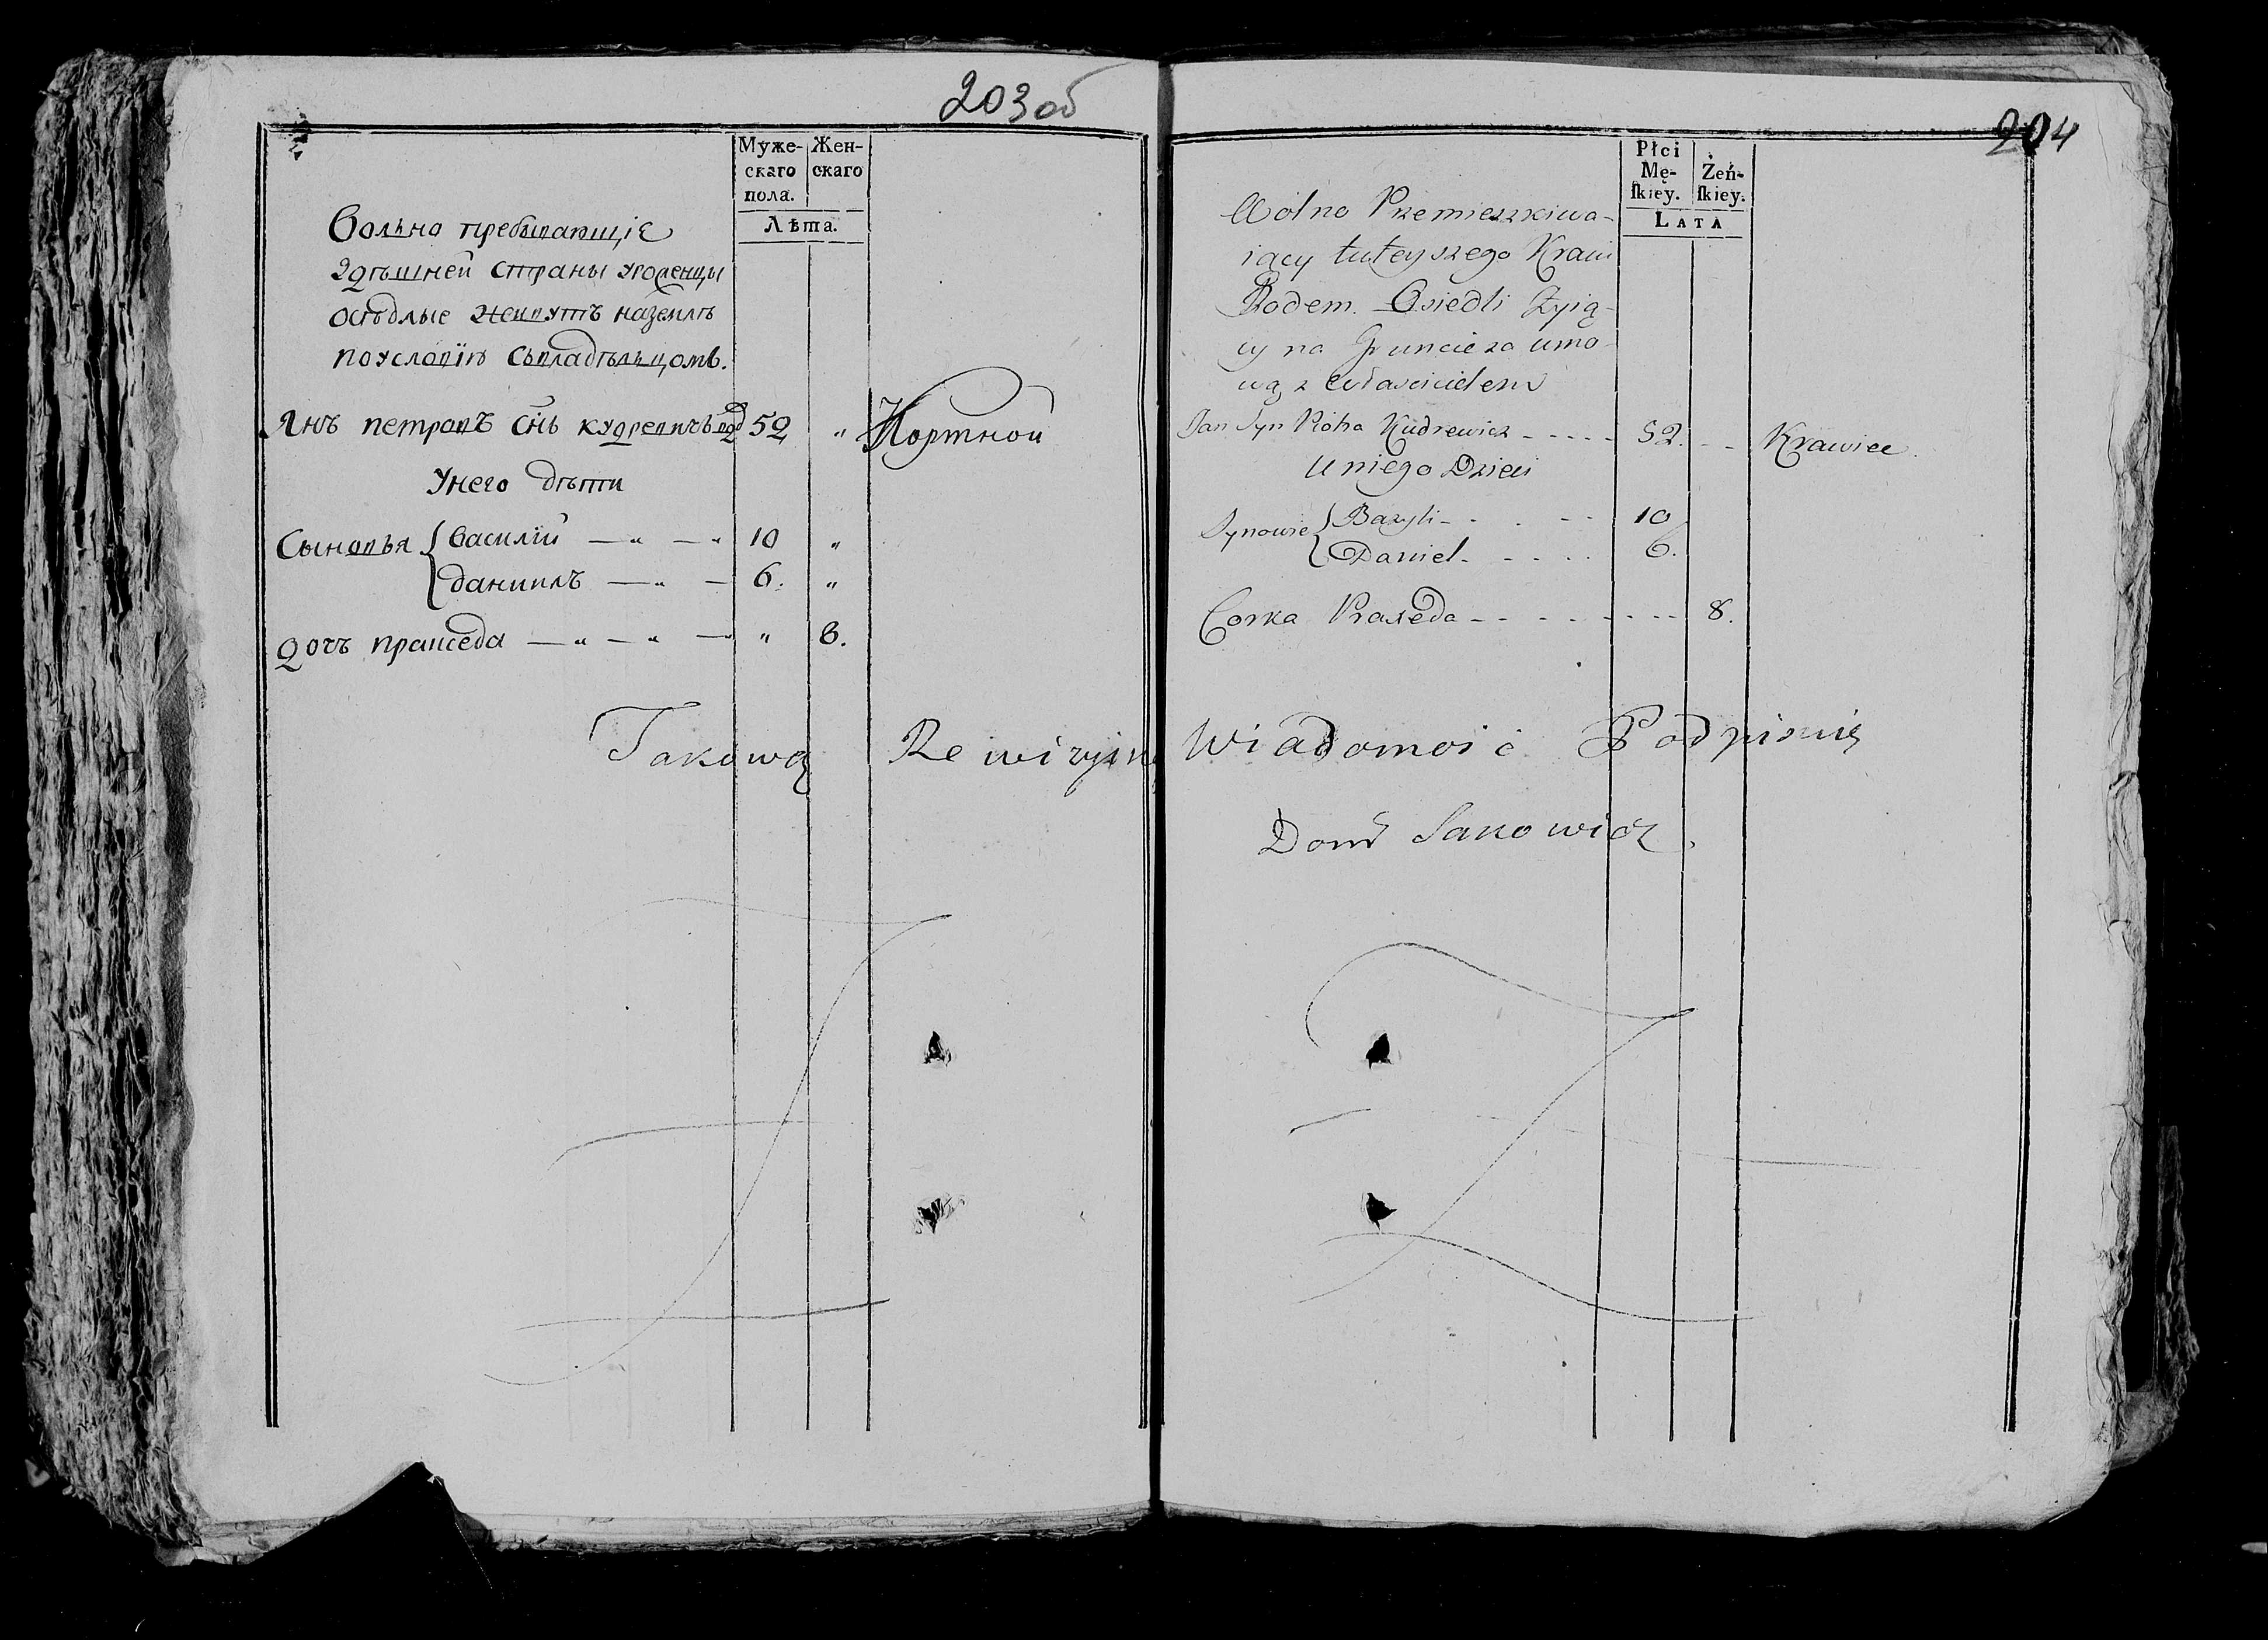 203 об
Муже-
скаго
пола.
Жен-
скаго
Лѣта.
Вольно пребывающіе
здѣшней страны уроженцы
осѣдлые живутъ наземлѣ
поусловію совладѣльцомъ.
Янъ петровъ снъ кудревичъ 52 „ Портной
Унего дѣти
Сыновья { Василій — „ — „ 10 „
даніилъ — „ — 6. „
дочь праѯеда — „ — „ — „ 8.
204
Płci
Mę-
ſkiey.
Żeń-
ſkiey.
LATA
Wolno Przemieszkiwa-
iący tuteyszego Kraiu
Rodem. Osiedli Żyią-
cy na Gruncie za umo-
wą z właścicielem
Jan Syn Piotra Kudrewicz - - - - - 52. - - Krawiec.
U niego Dzieci
Synowie { Bazyli - - . - - 10
Daniel - - - . . 6.
Corka Praxeda - - - - - - - - - 8.
Takową Rewizyiną Wiadomość Podpisuię
Dom Janowicz.